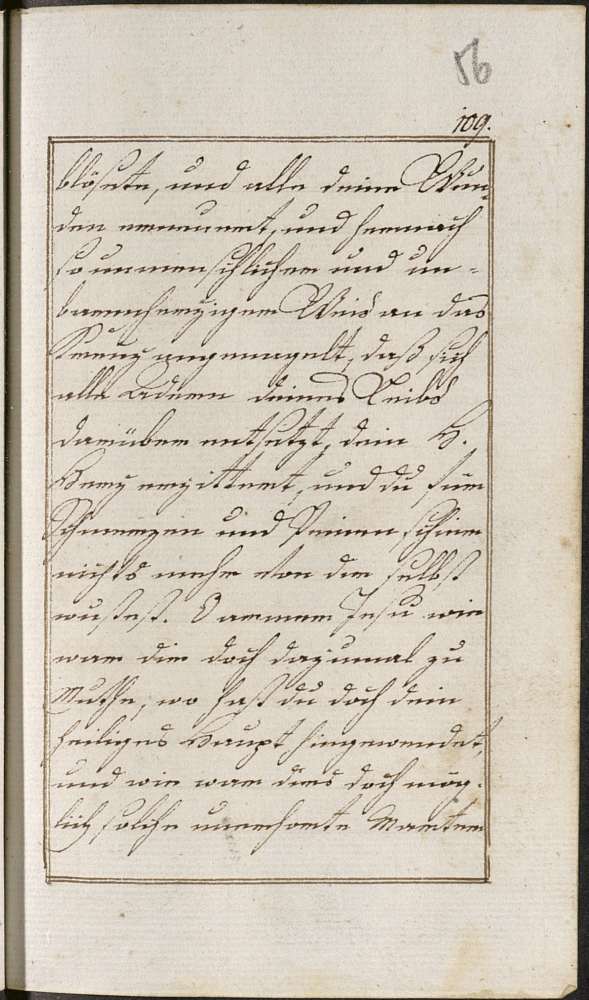 56
109.
blösete, und alle deine Wun-
den erneuert, und hernach
so unmenschlicher und un-
barmherziger Weis an das
Kreuz angenagelt, daß sich
alle Adern deines Leibs
darüber entsetzt, dein H.
Herz erzittert, und du für
Schmerzen und Peinen schier
nichts mehr von dir selbst
wußtest. O armer Jesu wie
war dir doch dazumal zu
Muthe, wo hast du doch dein
heiliges Haupt hingewendet,
und wie war dirs doch mög-
lich solche unerhorte Marter